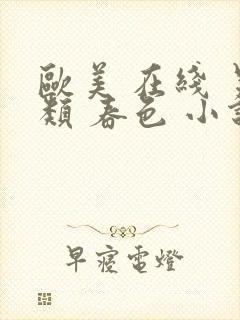 歐美 在綫 
類 春色 小
早寝電燈